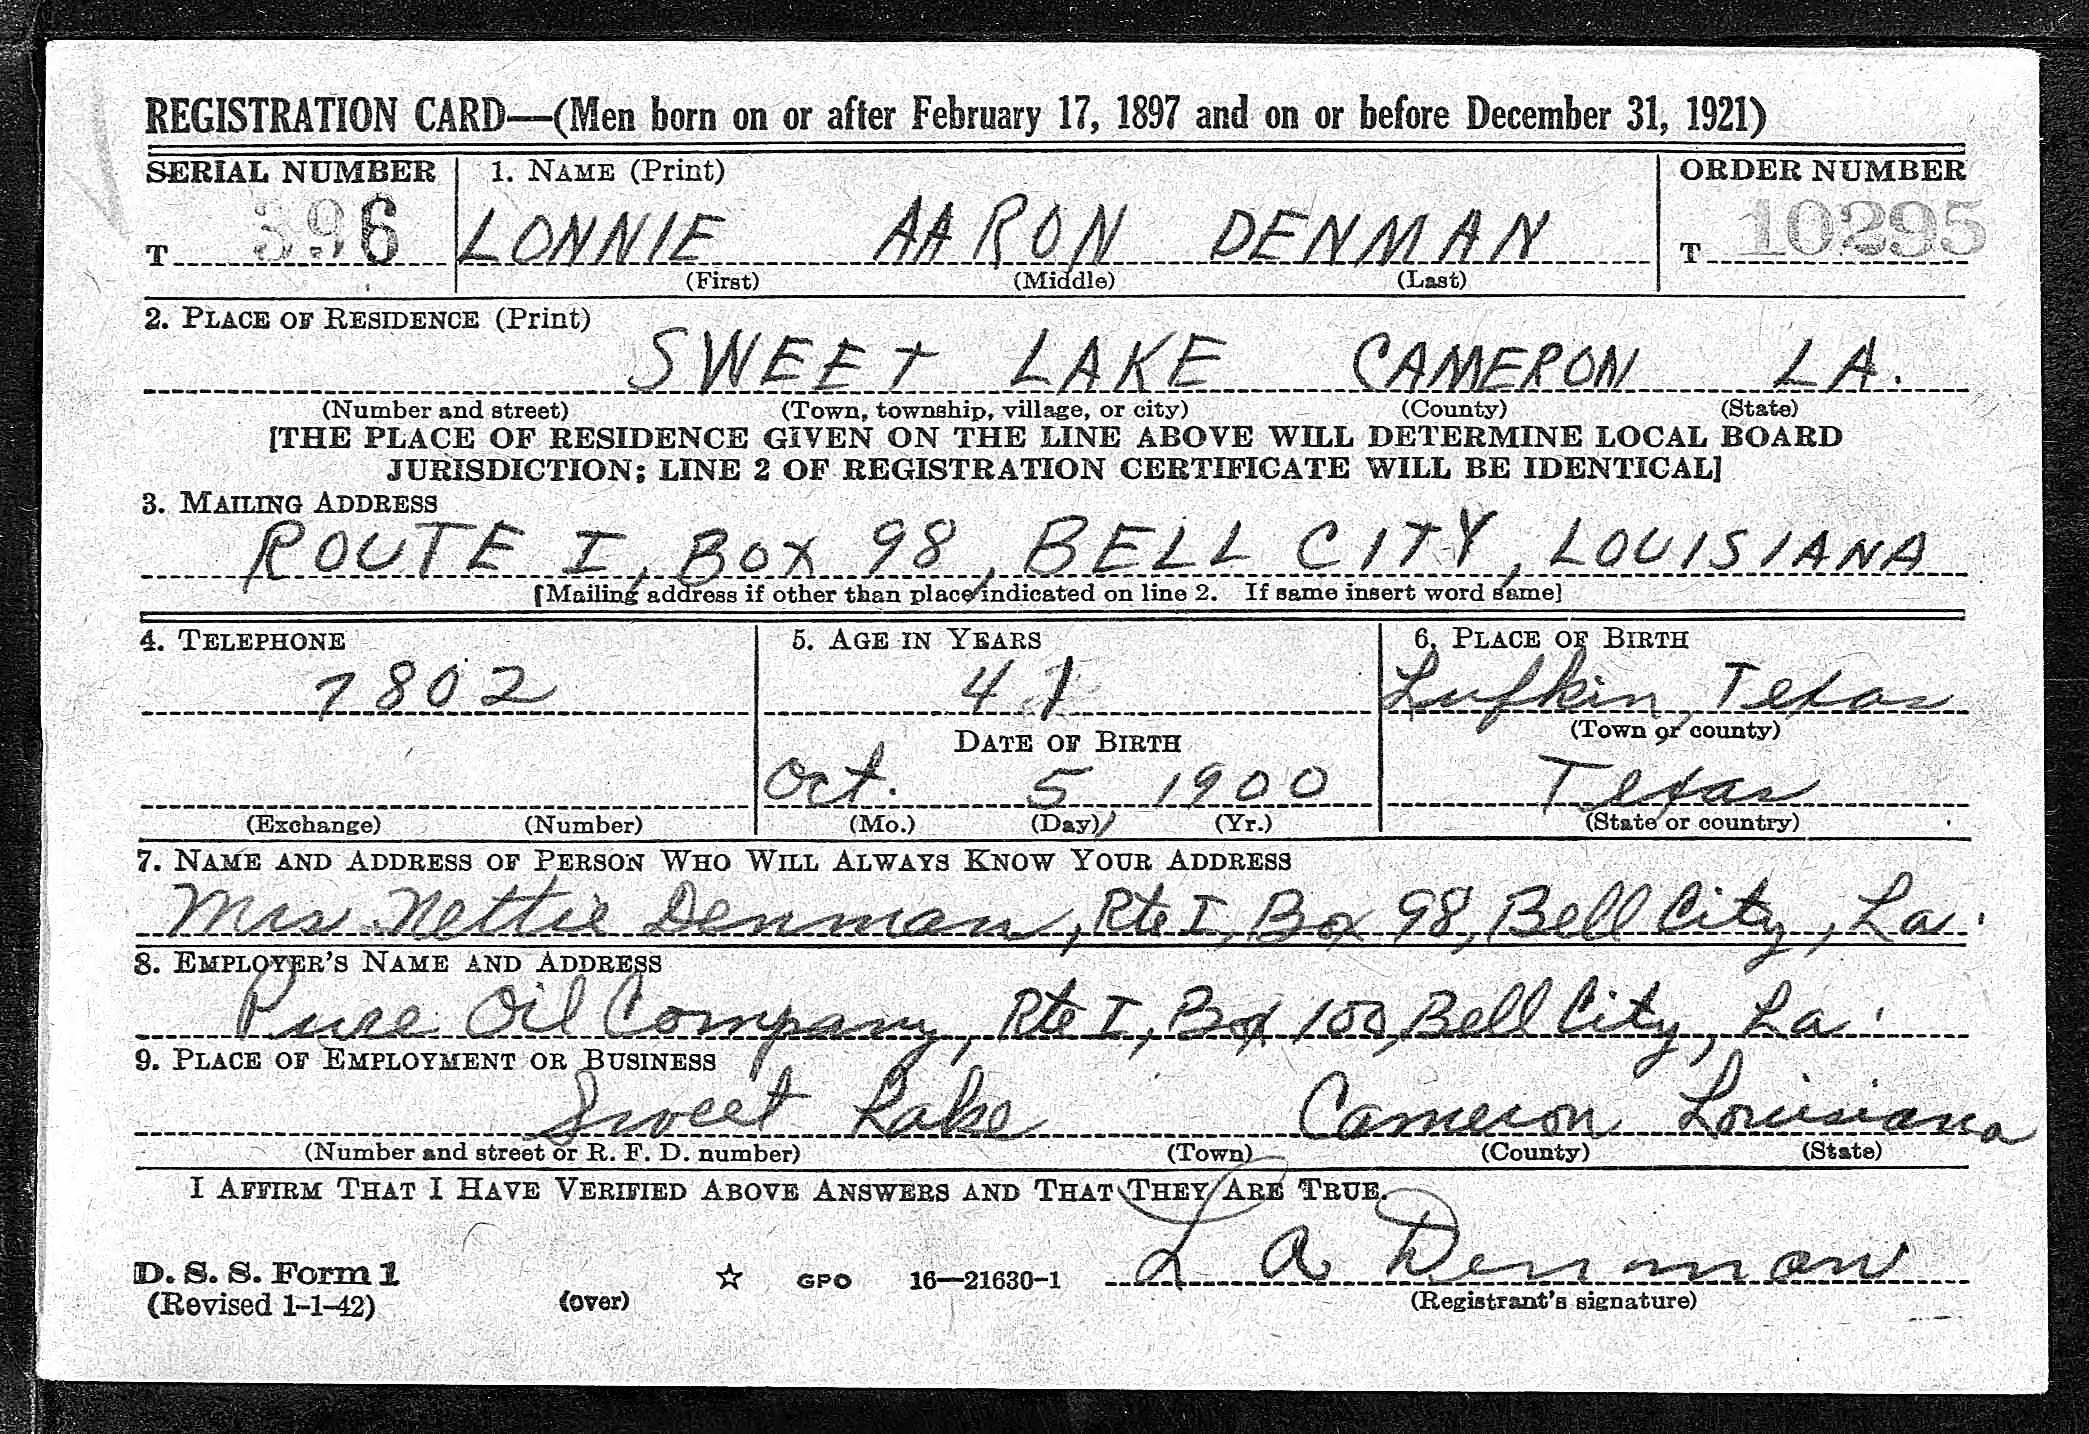 REGISTRATION CARD—(Men born on or after February 17, 1897 and on or before December 31, 1921)
SERIAL NUMBER 1. NAME (Print) ORDER NUMBER
T 396 LONNIE AARON DENMAN T 10295
(First) (Middle) (Last)
2. PLACE OF RESIDENCE (Print)
SWEET LAKE CAMERON LA.
(Number and street) (Town, township, village, or city) (County) (State)
[THE PLACE OF RESIDENCE GIVEN ON THE LINE ABOVE WILL DETERMINE LOCAL BOARD
JURISDICTION; LINE 2 OF REGISTRATION CERTIFICATE WILL BE IDENTICAL]
3. MAILING ADDRESS
ROUTE I, BOX 98, BELL CITY, LOUISIANA
[Mailing address if other than place indicated on line 2. If same insert word same]
4. TELEPHONE 5. AGE IN YEARS 6. PLACE OF BIRTH
7802 41 Lufkin, Texas
(Town or county)
DATE OF BIRTH
Oct. 5, 1900 Texas
(Exchange) (Number) (Mo.) (Day) (Yr.) (State or country)
7. NAME AND ADDRESS OF PERSON WHO WILL ALWAYS KNOW YOUR ADDRESS
Mrs. Nettie Denman, Rte I, Box 98, Bell City, La.
8. EMPLOYER'S NAME AND ADDRESS
Pure Oil Company, Rte I, Box 100, Bell City, La.
9. PLACE OF EMPLOYMENT OR BUSINESS
Sweet Lake Cameron Louisiana
(Number and street or R. F. D. number) (Town) (County) (State)
I AFFIRM THAT I HAVE VERIFIED ABOVE ANSWERS AND THAT THEY ARE TRUE.
L A Denman
D. S. S. Form 1
(Revised 1-1-42) (over) ☆ GPO 16—21630-1 (Registrant's signature)